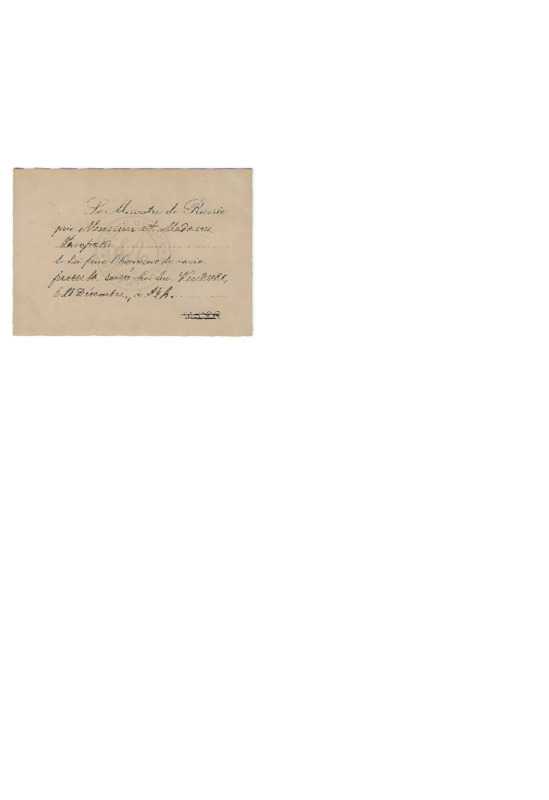 Le Ministre de Russie
prie Monsieur et Madame
de lui faire l'honneur de venir
passer la soirée chez lui Vendredi,
le Décembre, à 9½ h.